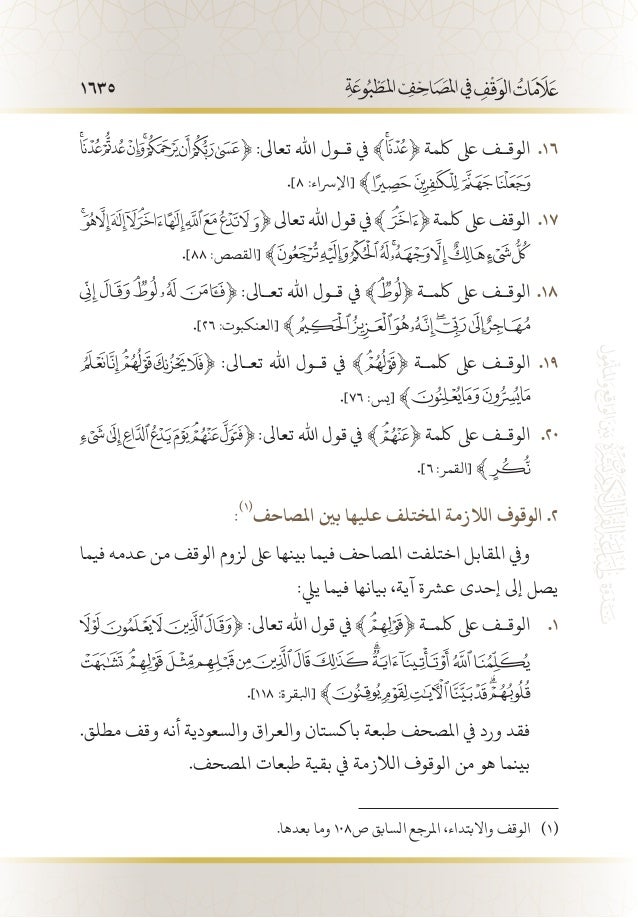 عَلَامَاتُ الوَقْفِ فِي المَصَاحِفِ المَطْبُوعَةِ ١٦٣٥
١٦. الوقف على كلمة ﴿عُدْنَا ۘ﴾ في قول الله تعالى: ﴿عَسَىٰ رَبُّكُمْ أَن يَرْحَمَكُمْ ۚ وَإِنْ عُدتُّمْ عُدْنَا ۘ
وَجَعَلْنَا جَهَنَّمَ لِلْكَٰفِرِينَ حَصِيرًا﴾ [الإسراء: ٨].
١٧. الوقف على كلمة ﴿ءَاخَرَ ۘ﴾ في قول الله تعالى ﴿وَلَا تَدْعُ مَعَ ٱللَّهِ إِلَٰهًا ءَاخَرَ ۘ لَآ إِلَٰهَ إِلَّا هُوَ ۚ
كُلُّ شَىْءٍ هَالِكٌ إِلَّا وَجْهَهُۥ ۚ لَهُ ٱلْحُكْمُ وَإِلَيْهِ تُرْجَعُونَ﴾ [القصص: ٨٨].
١٨. الوقف على كلمة ﴿لُوطٌ ۘ﴾ في قول الله تعالى: ﴿فَـَٔامَنَ لَهُۥ لُوطٌ ۘ وَقَالَ إِنِّى
مُهَاجِرٌ إِلَىٰ رَبِّىٓ ۖ إِنَّهُۥ هُوَ ٱلْعَزِيزُ ٱلْحَكِيمُ﴾ [العنكبوت: ٢٦].
١٩. الوقف على كلمة ﴿قَوْلُهُمْ ۘ﴾ في قول الله تعالى: ﴿فَلَا يَحْزُنكَ قَوْلُهُمْ ۘ إِنَّا نَعْلَمُ
مَا يُسِرُّونَ وَمَا يُعْلِنُونَ﴾ [يس: ٧٦].
٢٠. الوقف على كلمة ﴿عَنْهُمْ ۘ﴾ في قول الله تعالى: ﴿فَتَوَلَّ عَنْهُمْ ۘ يَوْمَ يَدْعُ ٱلدَّاعِ إِلَىٰ شَىْءٍ
نُّكُرٍ﴾ [القمر: ٦].
٢. الوقوف اللازمة المختلف عليها بين المصاحف(١):
وفي المقابل اختلفت المصاحف فيما بينها على لزوم الوقف من عدمه فيما
يصل إلى إحدى عشرة آية، بيانها فيما يلي:
١. الوقف على كلمة ﴿قَوْلِهِمْ ۘ﴾ في قول الله تعالى: ﴿وَقَالَ ٱلَّذِينَ لَا يَعْلَمُونَ لَوْلَا
يُكَلِّمُنَا ٱللَّهُ أَوْ تَأْتِينَآ ءَايَةٌ ۗ كَذَٰلِكَ قَالَ ٱلَّذِينَ مِن قَبْلِهِم مِّثْلَ قَوْلِهِمْ ۘ تَشَٰبَهَتْ
قُلُوبُهُمْ ۗ قَدْ بَيَّنَّا ٱلْءَايَٰتِ لِقَوْمٍ يُوقِنُونَ﴾ [البقرة: ١١٨].
فقد ورد في المصحف طبعة باكستان والعراق والسعودية أنه وقف مطلق.
بينما هو من الوقوف اللازمة في بقية طبعات المصحف.
(١) الوقف والابتداء، المرجع السابق ص١٠٨ وما بعدها.